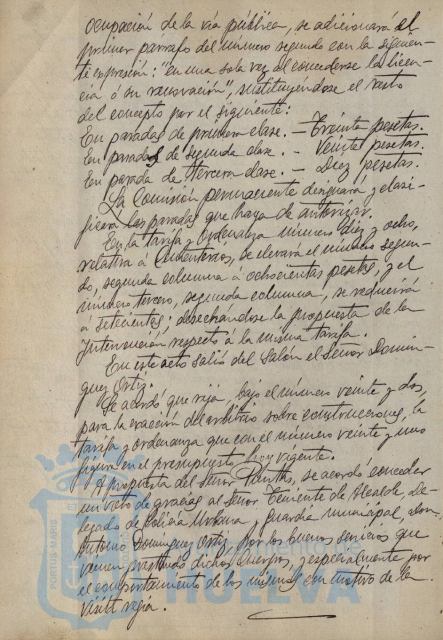 ocupación de la vía pública, se adicionará el
primer párrafo del número segundo con la siguien-
te expresión: "en una sola vez al concederse la licen-
cia ó su renovación", sustituyéndose el resto
del concepto por el siguiente:
En paradas de primera clase. — Treinta pesetas.
En paradas de segunda clase. — Veinte pesetas.
En parada de tercera clase. — Diez pesetas.
La Comisión permanente designará y clasi-
ficará las paradas que haya de autorizar.
En la tarifa y Ordenanza número diez y ocho,
relativa á Cementerios, se elevará el número segun-
do, segunda columna á ochocientas pesetas, y el
número tercero, segunda columna, se reducirá
á setecientas; desechándose la propuesta de la
Intervención respecto á la misma tarifa.
En este acto salió del Salón el Señor Domín-
guez Ortiz.
Se acordó que rija, bajo el número veinte y dos,
para la exacción del arbitrio sobre construcciones, la
tarifa y ordenanza que con el número veinte y uno
figura en el presupuesto hoy vigente.
A propuesta del Señor se acordó conceder
un voto de gracias al Señor Teniente de Alcalde, De-
legado de Policía Urbana y guardia municipal, Don
Antonio Domínguez Ortiz, por los buenos servicios que
vienen prestando dichos Cuerpos, y especialmente por
el comportamiento de los mismos con motivo de la
visita regia.
PORTUS MARIS
HUELVA